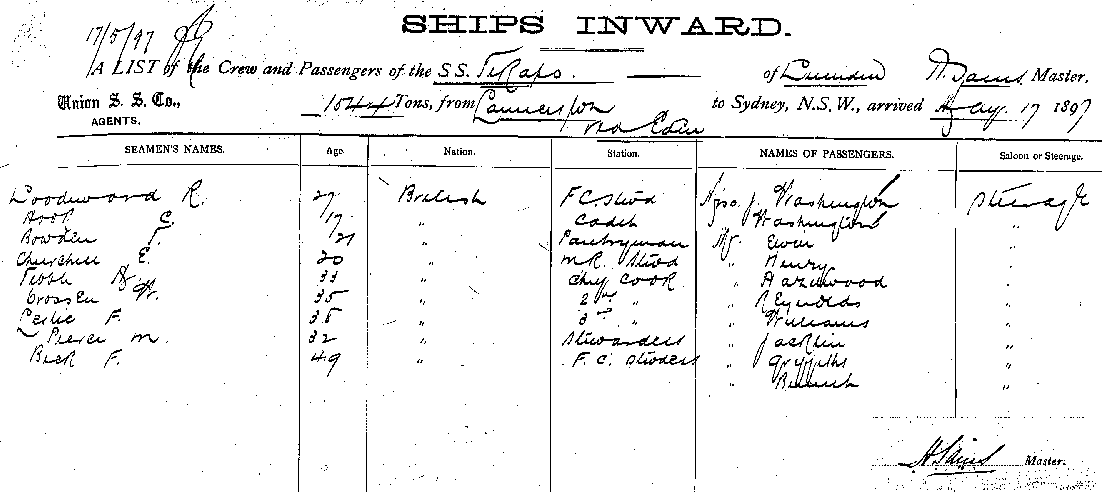 SHIPS INWARD.
17/5/97
A LIST of the Crew and Passengers of the S.S. Te Kapo. of Dunedin Master,
Union S. S. Co., 1044 Tons, from Launceston to Sydney, N.S.W., arrived May 17 1897
AGENTS. via Eden
SEAMEN'S NAMES. Age. Nation. Station. NAMES OF PASSENGERS. Saloon or Steerage.
Woodward R. 27 British F.C. Stwd Washington Steerage
C. 17 " Cadet Washington "
Bowden F. 21 " Pantryman Mr Ewin "
Churchill E. 20 " M.R. Stwd " Henry "
Tibbs 33 " Chf Cook " Hazelwood "
Crossen W. 35 " 2nd " " Reynolds "
Leslie F. 38 " 3rd " " Williams "
Pierce M. 32 " Stewardess " Jacklin "
Buck F. 49 " F.C. Stwdess " Griffiths "
" "
Master.